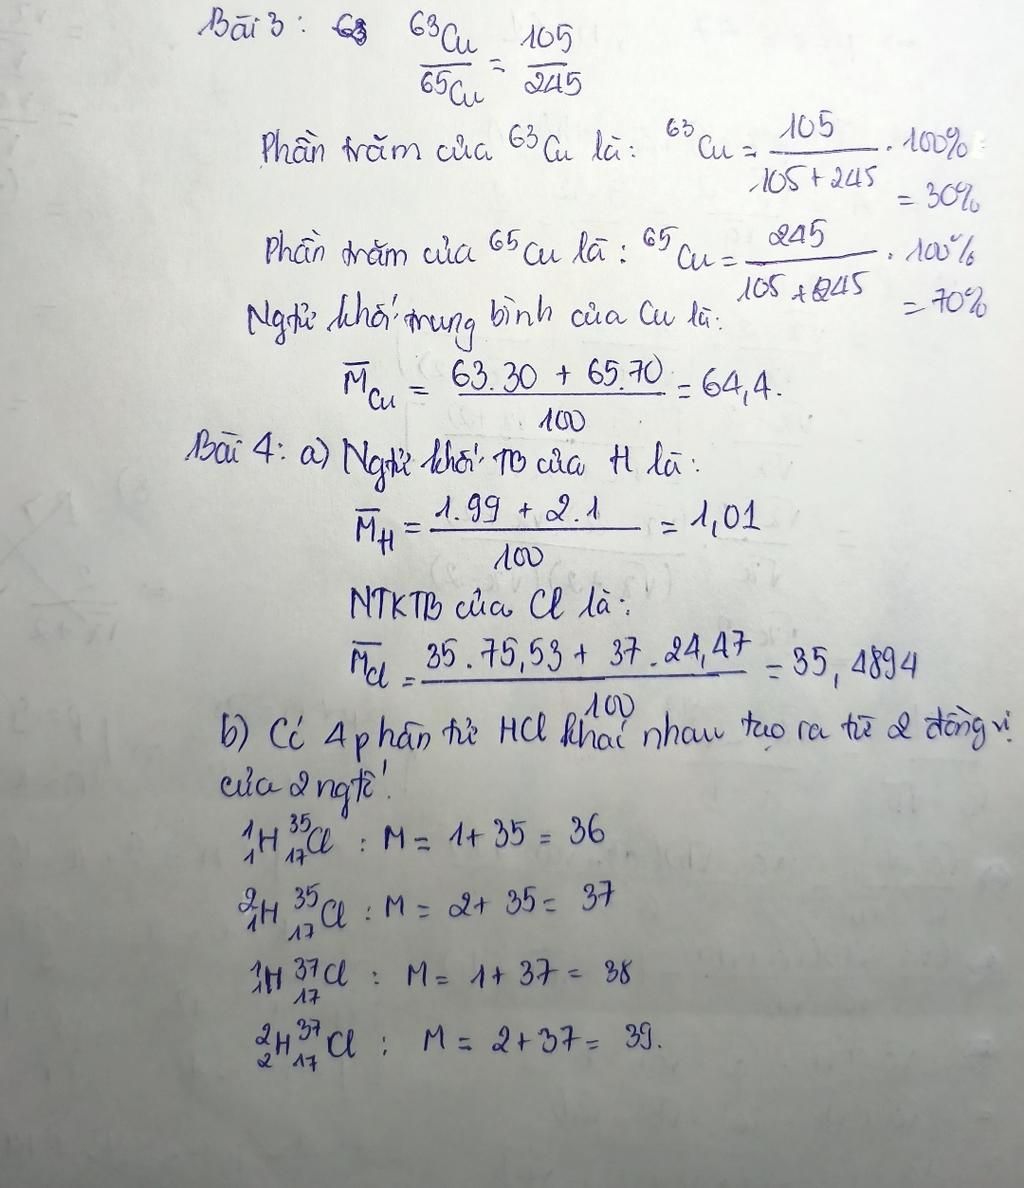 Bài 3: 63 ⁶³Cu/⁶⁵Cu = 105/245
Phần trăm của ⁶³Cu là: ⁶³Cu = 105/(105+245) . 100%
= 30%
Phần trăm của ⁶⁵Cu là: ⁶⁵Cu = 245/(105+245) . 100%
= 70%
Ngtử khối trung bình của Cu là:
M̅Cu = (63.30 + 65.70)/100 = 64,4.
Bài 4: a) Ngtử khối TB của H là:
M̅H = (1.99 + 2.1)/100 = 1,01
NTKTB của Cl là:
M̅Cl = (35.75,53 + 37.24,47)/100 = 35,4894
b) Có 4 phân tử HCl khác nhau tạo ra từ 2 đồng vị
của 2 ngtố.
¹₁H ³⁵₁₇Cl : M = 1+35 = 36
²₁H ³⁵₁₇Cl : M = 2+35 = 37
¹₁H ³⁷₁₇Cl : M = 1+37 = 38
²₂H ³⁷₁₇Cl : M = 2+37 = 39.